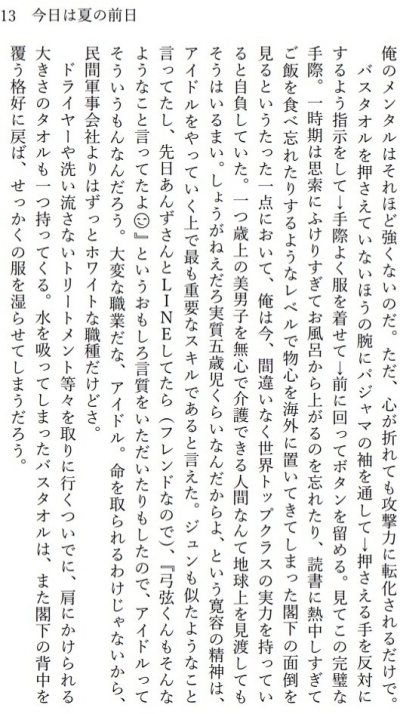 13　今日は夏の前日
俺のメンタルはそれほど強くないのだ。ただ、心が折れても攻撃力に転化されるだけで。
　バスタオルを押さえていないほうの腕にパジャマの袖を通して→押さえる手を反対に
するよう指示をして→手際よく服を着せて→前に回ってボタンを留める。見てこの完璧な
手際。一時期は思索にふけりすぎてお風呂から上がるのを忘れたり、読書に熱中しすぎて
ご飯を食べ忘れたりするようなレベルで物心を海外に置いてきてしまった閣下の面倒を
見るというたった一点において、俺は今、間違いなく世界トップクラスの実力を持ってい
ると自負していた。一つ歳上の美男子を無心で介護できる人間なんて地球上を見渡しても
そうはいるまい。しょうがねえだろ実質五歳児くらいなんだからよ、という寛容の精神は、
アイドルをやっていく上で最も重要なスキルであると言えた。ジュンも似たようなこと
言ってたし、先日あんずさんとLINEしてたら（フレンドなので）、『弓弦くんもそんな
ようなこと言ってたよ☺』というおもしろ言質をいただいたりもしたので、アイドルって
そういうもんなんだろう。大変な職業だな、アイドル。命を取られるわけじゃないから、
民間軍事会社よりはずっとホワイトな職種だけどさ。
　ドライヤーや洗い流さないトリートメント等々を取りに行くついでに、肩にかけられる
大きさのタオルも一つ持ってくる。水を吸ってしまったバスタオルは、また閣下の背中を
覆う格好に戻ば、せっかくの服を湿らせてしまうだろう。